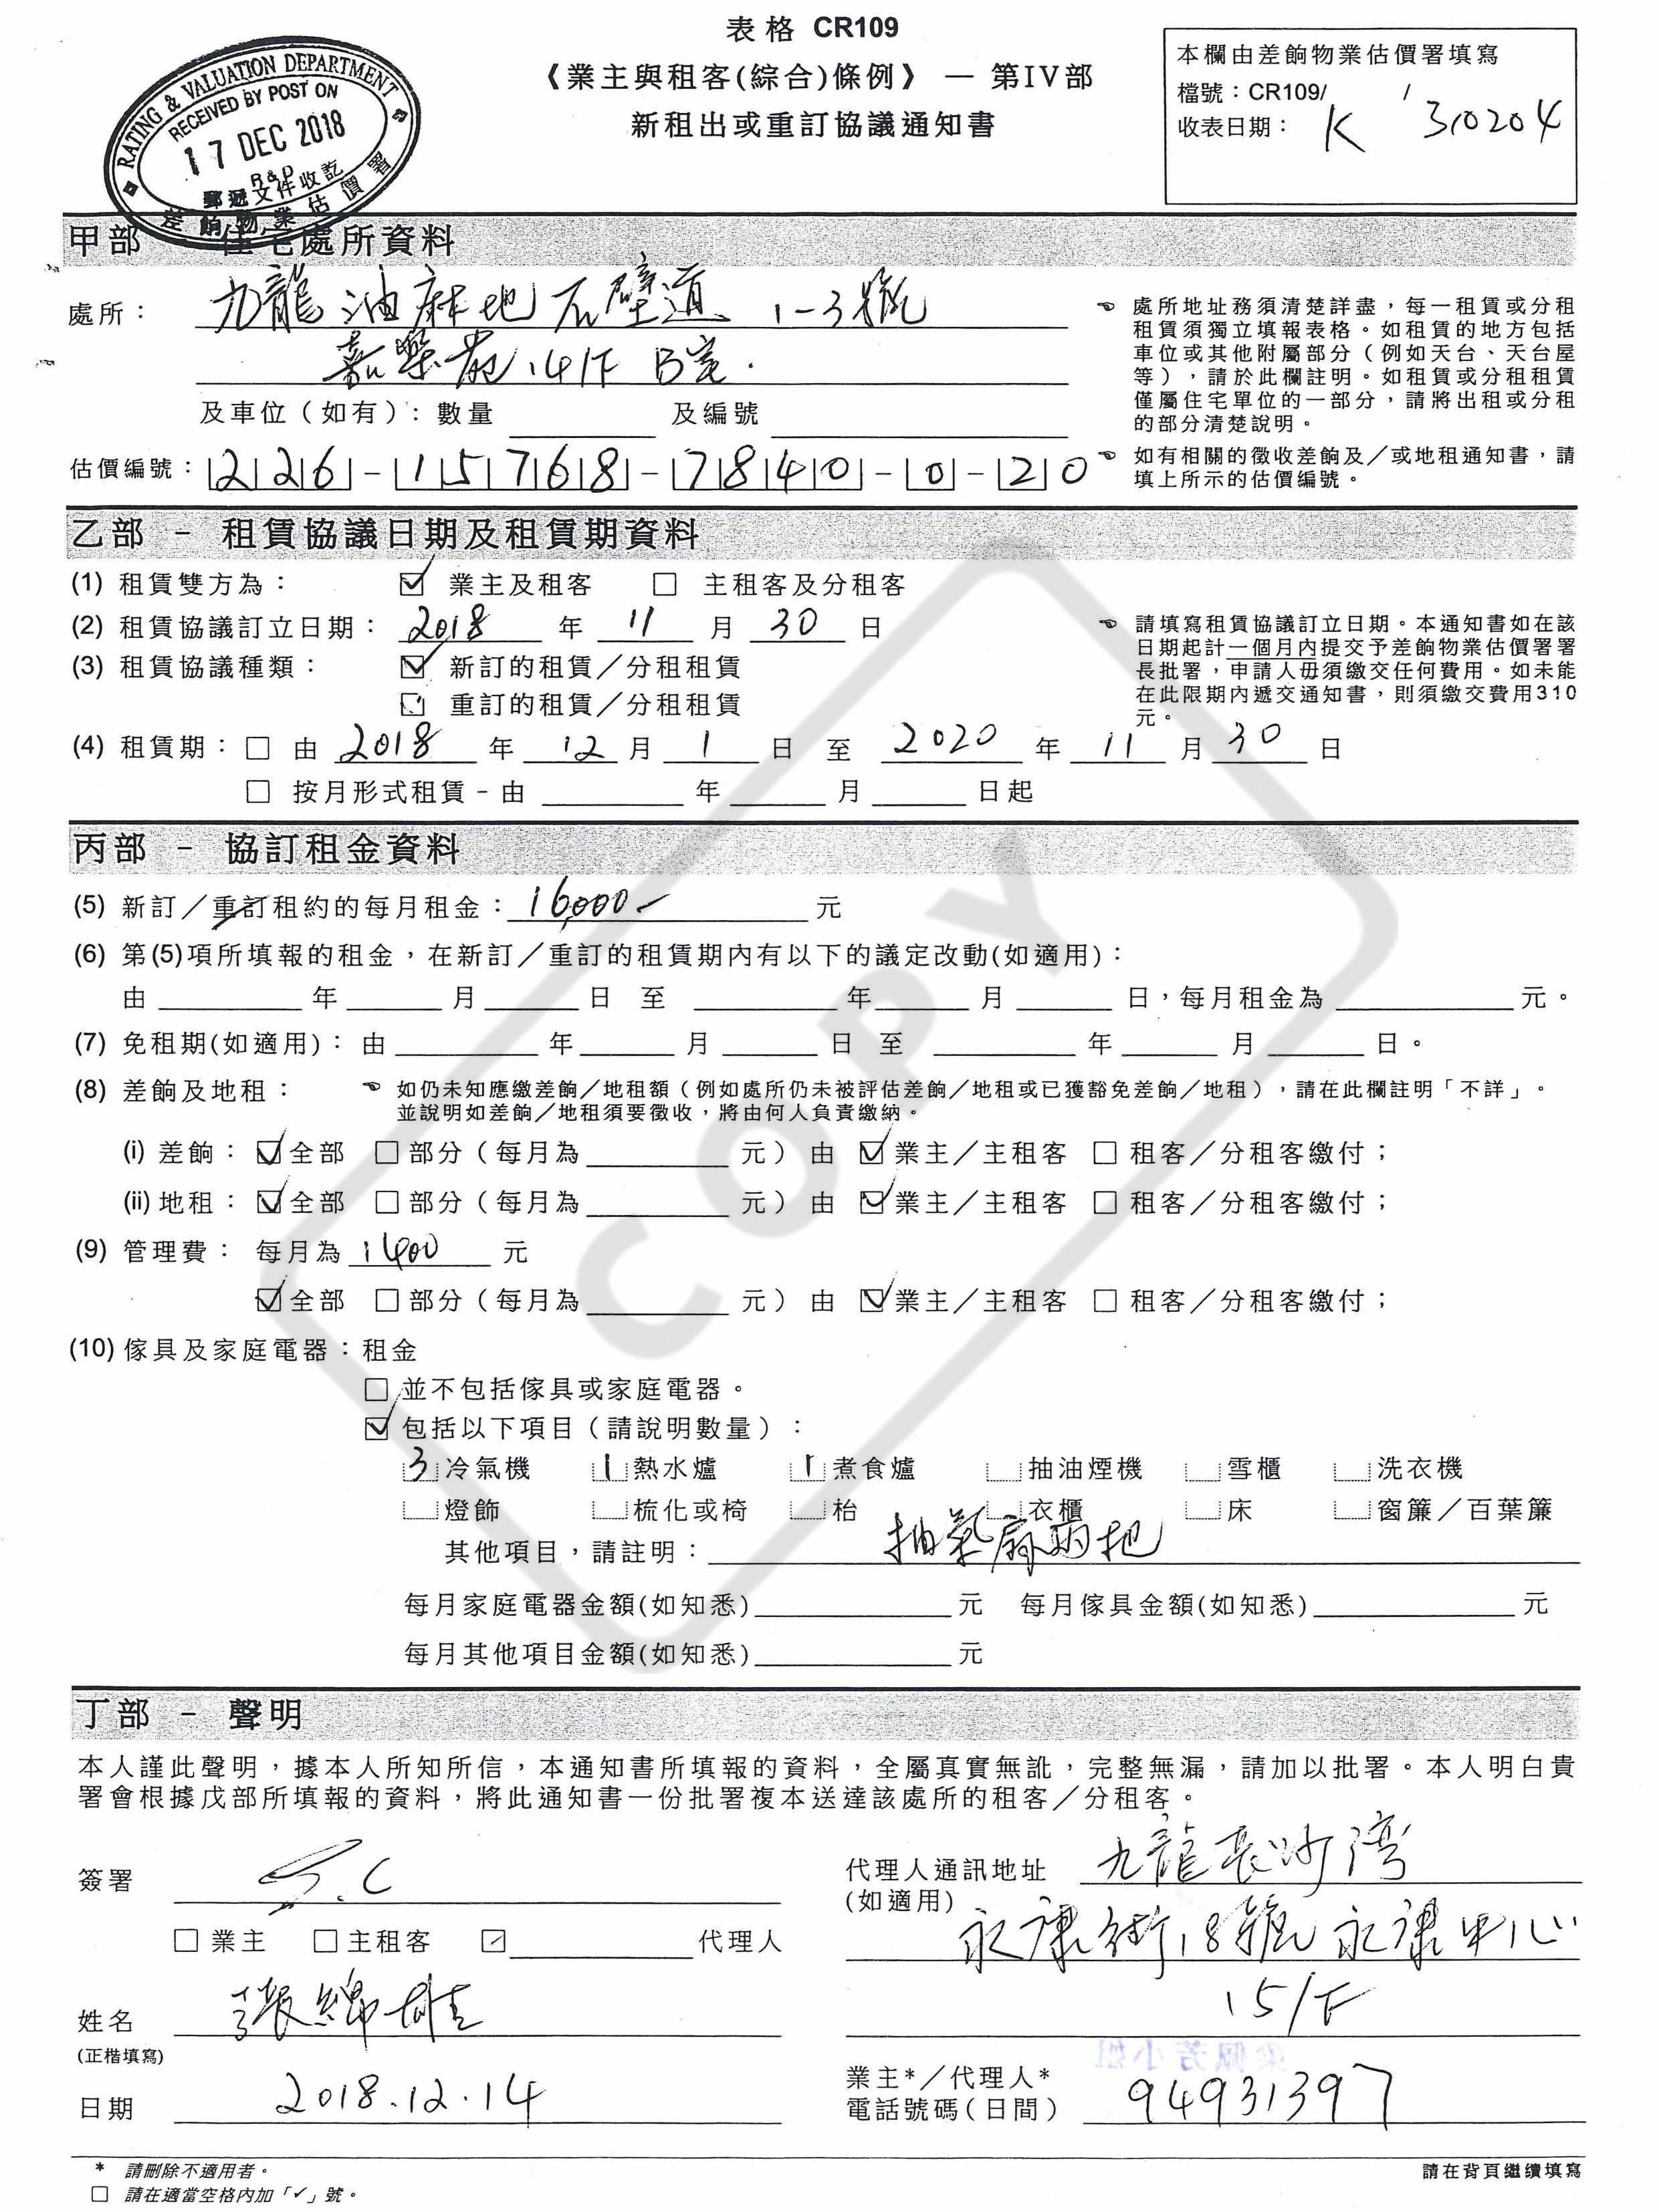 表格 CR109
《業主與租客(綜合)條例》 — 第IV部
新租出或重訂協議通知書
RATING & VALUATION DEPARTMENT
RECEIVED BY POST ON
17 DEC 2018
R&D
郵遞文件收訖
差餉物業估價署
本欄由差餉物業估價署填寫
檔號：CR109/ /
收表日期： K 310204
甲部 住宅處所資料
處所： 九龍油麻地石壁道 1-3號
嘉樂苑 14/F B室.
及車位（如有）：數量 及編號
估價編號：226-15768-7840-0-20
☜ 處所地址務須清楚詳盡，每一租賃或分租
租賃須獨立填報表格。如租賃的地方包括
車位或其他附屬部分（例如天台、天台屋
等），請於此欄註明。如租賃或分租租賃
僅屬住宅單位的一部分，請將出租或分租
的部分清楚說明。
☜ 如有相關的徵收差餉及／或地租通知書，請
填上所示的估價編號。
乙部 - 租賃協議日期及租賃期資料
(1) 租賃雙方為： ☑ 業主及租客 □ 主租客及分租客
(2) 租賃協議訂立日期： 2018 年 11 月 30 日
(3) 租賃協議種類： ☑ 新訂的租賃／分租租賃
□ 重訂的租賃／分租租賃
☜ 請填寫租賃協議訂立日期。本通知書如在該
日期起計一個月內提交予差餉物業估價署署
長批署，申請人毋須繳交任何費用。如未能
在此限期內遞交通知書，則須繳交費用310
元。
(4) 租賃期：□ 由 2018 年 12 月 1 日 至 2020 年 11 月 30 日
□ 按月形式租賃 - 由 年 月 日起
丙部 - 協訂租金資料
(5) 新訂／重訂租約的每月租金： 16,000- 元
(6) 第(5)項所填報的租金，在新訂／重訂的租賃期內有以下的議定改動(如適用)：
由 年 月 日 至 年 月 日，每月租金為 元。
(7) 免租期(如適用)：由 年 月 日 至 年 月 日。
(8) 差餉及地租： ☜ 如仍未知應繳差餉／地租額（例如處所仍未被評估差餉／地租或已獲豁免差餉／地租），請在此欄註明「不詳」。
並說明如差餉／地租須要徵收，將由何人負責繳納。
(i) 差餉：☑全部 □部分（每月為 元）由 ☑業主／主租客 □ 租客／分租客繳付；
(ii) 地租：☑全部 □部分（每月為 元）由 ☑業主／主租客 □ 租客／分租客繳付；
(9) 管理費： 每月為 1400 元
☑全部 □部分（每月為 元）由 ☑業主／主租客 □ 租客／分租客繳付；
(10) 傢具及家庭電器：租金
□ 並不包括傢具或家庭電器。
☑ 包括以下項目（請說明數量）：
3 冷氣機 1 熱水爐 1 煮食爐 抽油煙機 雪櫃 洗衣機
燈飾 梳化或椅 枱 衣櫃 床 窗簾／百葉簾
其他項目，請註明： 抽氣扇兩把
每月家庭電器金額(如知悉) 元 每月傢具金額(如知悉) 元
每月其他項目金額(如知悉) 元
COPY
丁部 - 聲明
本人謹此聲明，據本人所知所信，本通知書所填報的資料，全屬真實無訛，完整無漏，請加以批署。本人明白貴
署會根據戊部所填報的資料，將此通知書一份批署複本送達該處所的租客／分租客。
簽署 S.C
□ 業主 □ 主租客 ☑ 代理人
姓名 張綿雄
(正楷填寫)
日期 2018.12.14
代理人通訊地址 九龍長沙灣
(如適用) 永康街18號永康中心
15/F
業主*／代理人* 94931397
電話號碼（日間）
* 請刪除不適用者。
□ 請在適當空格內加「✓」號。
請在背頁繼續填寫